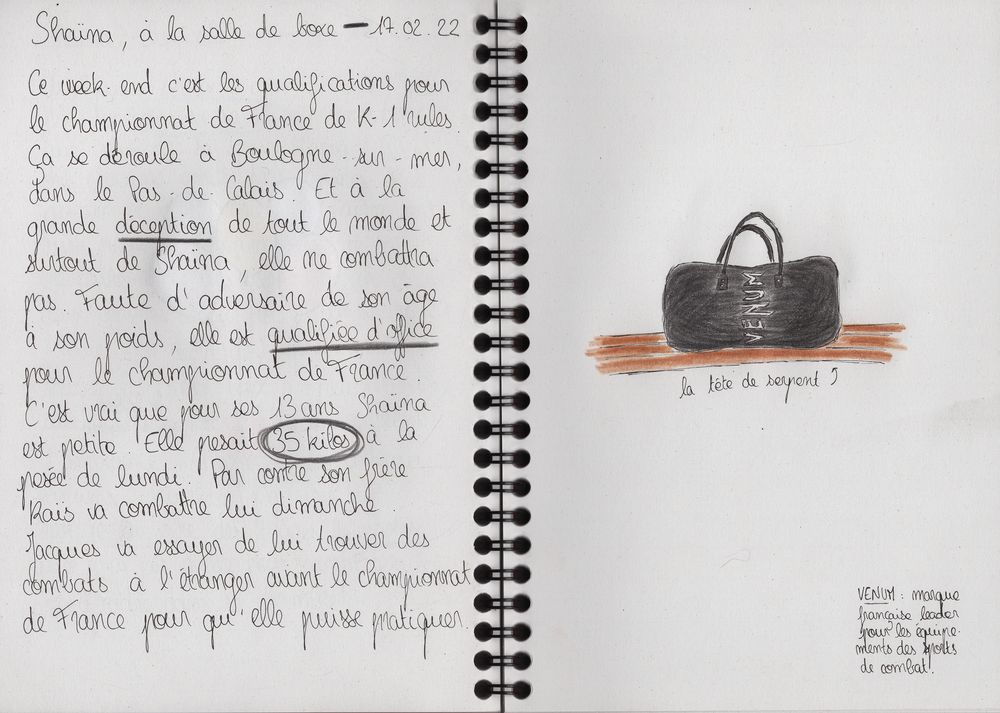 Shaïna, à la salle de boxe — 17.02.22
Ce week-end c'est les qualifications pour
le championnat de France de K-1 rules.
Ça se déroule à Boulogne-sur-mer,
dans le Pas-de-Calais. Et à la
grande déception de tout le monde et
surtout de Shaïna, elle ne combattra
pas. Faute d'adversaire de son âge
à son poids, elle est qualifiée d'office
pour le championnat de France.
C'est vrai que pour ses 13 ans Shaïna
est petite. Elle pesait 35 kilos à la
pesée de lundi. Par contre son frère
Kaïs va combattre lui dimanche.
Jacques va essayer de lui trouver des
combats à l'étranger avant le championnat
de France pour qu'elle puisse pratiquer.
VENUM
la tête de serpent
VENUM : marque
française leader
pour les équipe-
ments des sports
de combat.